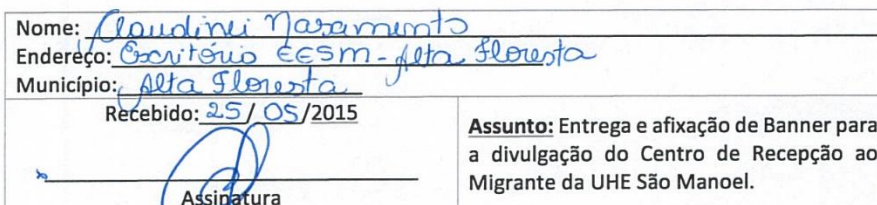 Nome: Claudinei Nasamento
Endereço: Escritório EESM - Alta Floresta
Município: Alta Floresta
Recebido: 25/05/2015
Assinatura
Assunto: Entrega e afixação de Banner para
a divulgação do Centro de Recepção ao
Migrante da UHE São Manoel.